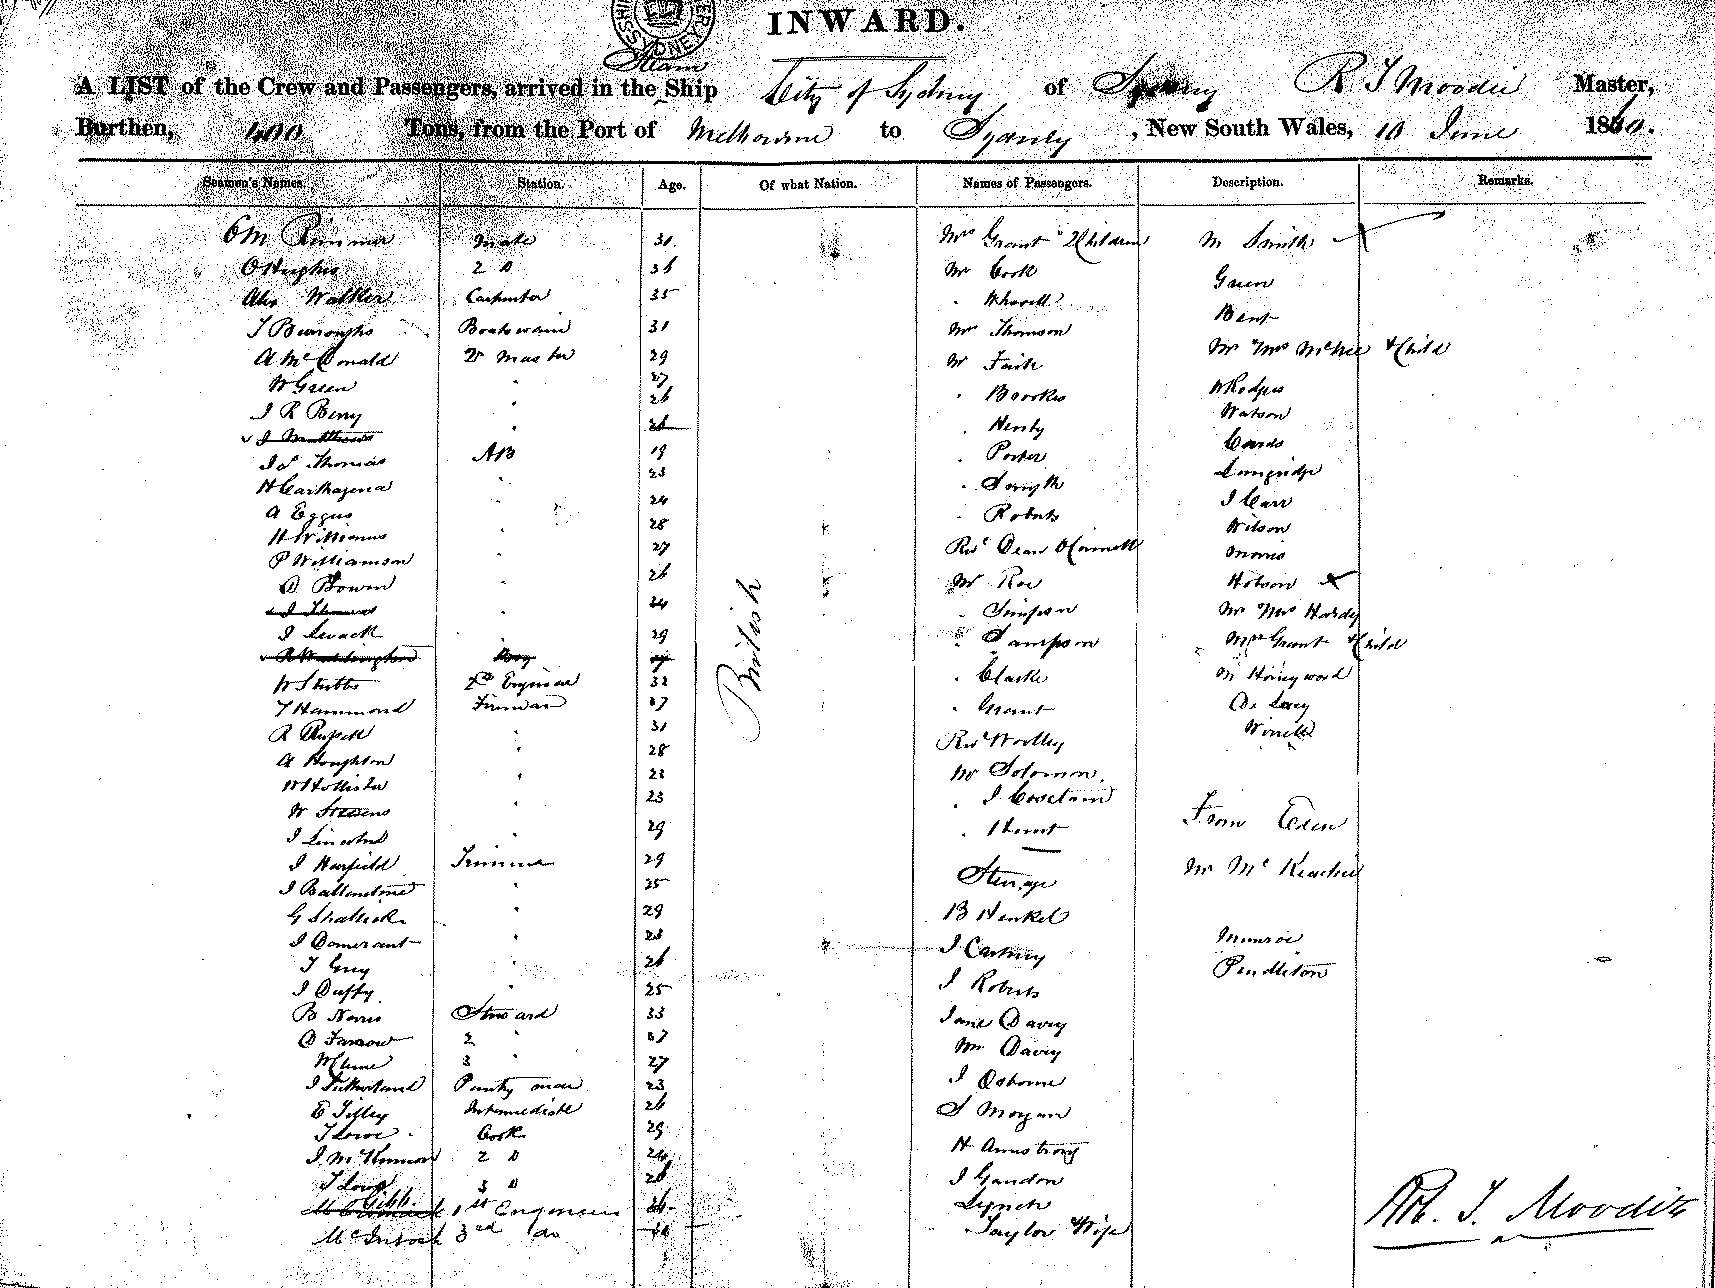 INWARD.
Steam
A LIST of the Crew and Passengers, arrived in the Ship City of Sydney of Sydney R T Moodie Master,
Burthen, 400 Tons, from the Port of Melbourne to Sydney, New South Wales, 10 June 18
Seamen's Names. Station. Age. Of what Nation. Names of Passengers. Description. Remarks.
Mate 31 Mrs Grant 2 Children M Smith
O Hughes 2 D Mr Cook Green
Alex Walker Carpenter 35
T Burroughs Boatswain 31 Mr Thomson Bent
A McDonald Qr Master 29 Mr Faith Mr Mrs McKee & Child
W Green 27 Brookes W Rodgers
J R Berry 26 Henty Watson
J Matthews Porter Cards
J S Thomas AB 19 Smyth Longridge
H Carthagena 23 Roberts J Carr
A Eggus 24 Revd Dean O'Connell Wilson
H Williams 28 Mr Roe Morris
P Williamson 27 Simpson Hobson
D Bowen 26 Sampson Mr Mrs Hardy
J Thomas 24 Clarke Mrs Grant & Child
J Swack 29 Grant M Honeywood
Boy Revd Woolley De Lacy
W Stubbs 2nd Engineer 32 Mr Solomon
T Hammond Fireman
British
R Russell 31 Hunt
A Houghton 28
W Hollister 22 From Eden
W Stevens 23
J Lincoln 29
J Harfield Trimmer 29 Steerage Mr McKeachie
J Ballentine 25 B Henkel
G Shallick 29 Munroe
J Domerant J Roberts Pendleton
T Guy 26 Jane Davey
J Duffy 25 Mr Davey
B Norris Steward 33 J Osborne
D Farrow 2 S Morgan
W Clune 3 27 H Armstrong
J Sutherland Pantry man 23 J Gandon
E Tilley Intermediate 26 Lynch
T Lowe Cook 29 Taylor & Wife
J McKinnon 2 D 24
3 D
Gibb 1st Engineer
McIntosh 3rd do
Rob. T. Moodie